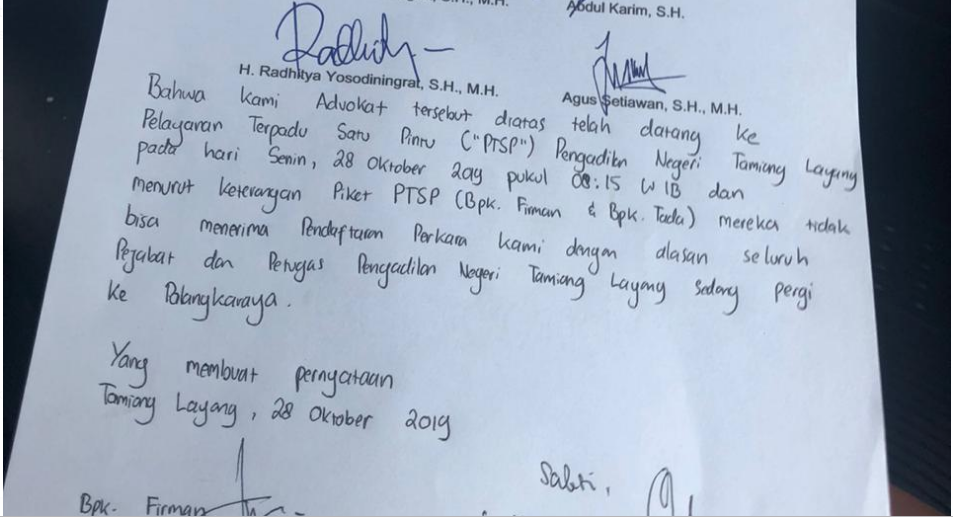 S.H., M.H.
Abdul Karim, S.H.
H. Radhitya Yosodiningrat, S.H., M.H.
Agus Setiawan, S.H., M.H.
Bahwa Kami Advokat tersebut diatas telah datang ke
Pelayanan Terpadu Satu Pintu ("PTSP") Pengadilan Negeri Tamiang Layang
pada hari Senin, 28 Oktober 2019 pukul 08:15 WIB dan
menurut keterangan Piket PTSP (Bpk. Firman & Bpk. Tada) mereka tidak
bisa menerima Pendaftaran Perkara kami dengan alasan seluruh
Pejabat dan Petugas Pengadilan Negeri Tamiang Layang sedang pergi
ke Palangkaraya.
Yang membuat pernyataan
Tamiang Layang, 28 Oktober 2019
Saksi,
Bpk. Firman